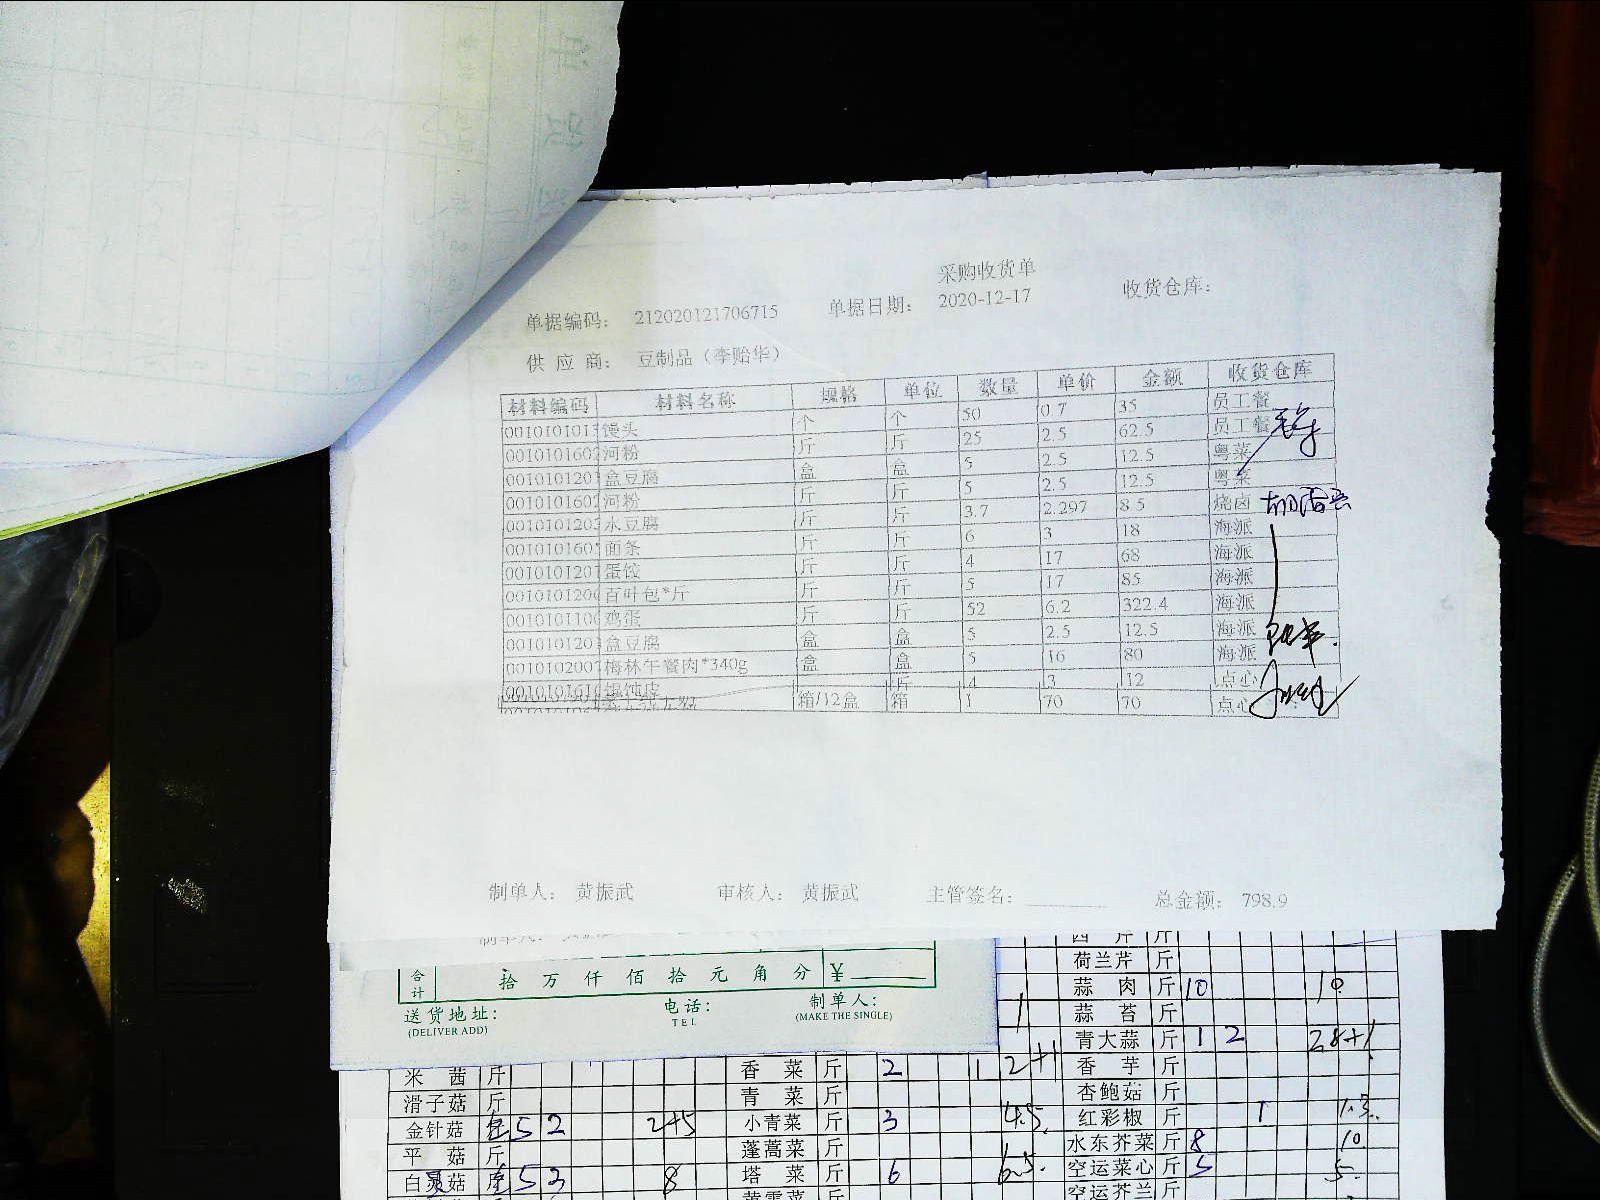 采购收货单
单据编码： 212020121706715 单据日期： 2020-12-17 收货仓库：
供 应 商： 豆制品（李贻华）
材料编码 材料名称 规格 单位 数量 单价 金额 收货仓库
001010101 馒头 个 个 50 0.7 35 员工餐
001010160 河粉 斤 斤 25 2.5 62.5 员工餐
001010120 盒豆腐 盒 盒 5 2.5 12.5 粤菜
001010160 河粉 斤 斤 5 2.5 12.5 粤菜
001010120 水豆腐 斤 斤 3.7 2.297 8.5 烧卤
001010160 面条 斤 斤 6 3 18 海派
001010120 蛋饺 斤 斤 4 17 68 海派
001010120 百叶包*斤 斤 斤 5 17 85 海派
001010110 鸡蛋 斤 斤 52 6.2 322.4 海派
001010120 盒豆腐 盒 盒 5 2.5 12.5 海派
001010200 梅林午餐肉*340g 盒 盒 5 16 80 海派
001010161 馄饨皮 斤 4 3 12 点心
箱/12盒 箱 1 70 70 点心
制单人： 黄振武 审核人： 黄振武 主管签名： 总金额： 798.9
制单人：
合计 拾 万 仟 佰 拾 元 角 分 ¥
送货地址： 电话： 制单人：
(DELIVER ADD) TEL (MAKE THE SINGLE)
西 芹 斤
荷兰芹 斤
蒜 肉 斤 10 10
蒜 苔 斤
青大蒜 斤 1 2 28+1
米 茜 斤 香 菜 斤 2 1 2+1 香 芋 斤
滑子菇 斤 青 菜 斤 杏鲍菇 斤
金针菇 5 2 2+5 小青菜 斤 3 4.5 红彩椒 斤 1 1.3
平 菇 斤 蓬蒿菜 斤 水东芥菜 斤 8 10
白灵菇 5 3 8 塔 菜 斤 6 6.5 空运菜心 斤 5 5
空运芥兰 斤